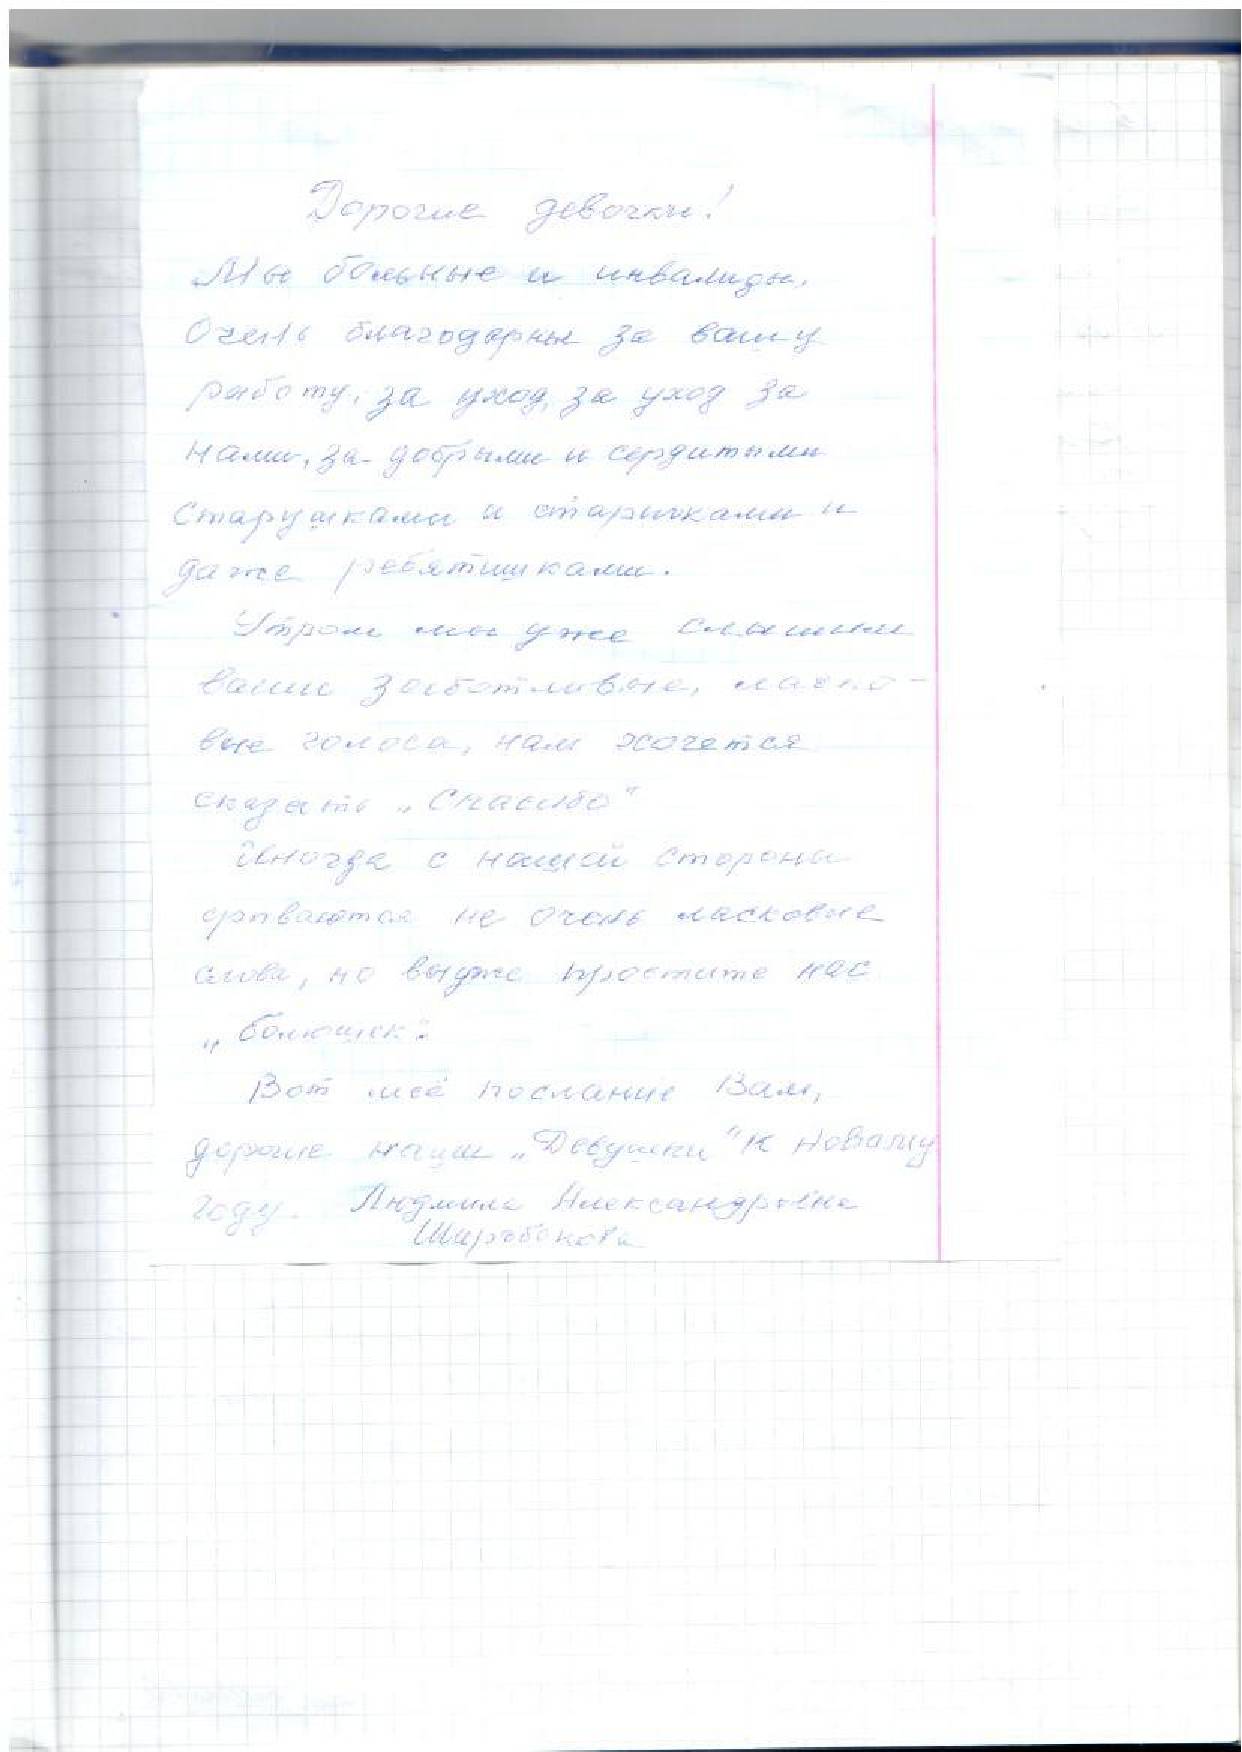 Дорогие девочки!
Мы больные и инвалиды.
Очень благодарны за вашу
работу, за уход, за уход за
нами, за добрыми и сердитыми
старушками и старичками и
даже ребятишками.
Утром мы уже слышим
ваши заботливые, ласко-
вые голоса, нам хочется
сказать „Спасибо“
Иногда с нашей стороны
срываются не очень ласковые
слова, но вы уже простите нас
„болюшек“.
Вот моё послание Вам,
дорогие наши „Девушки“ к Новому
году. Людмила Александровна